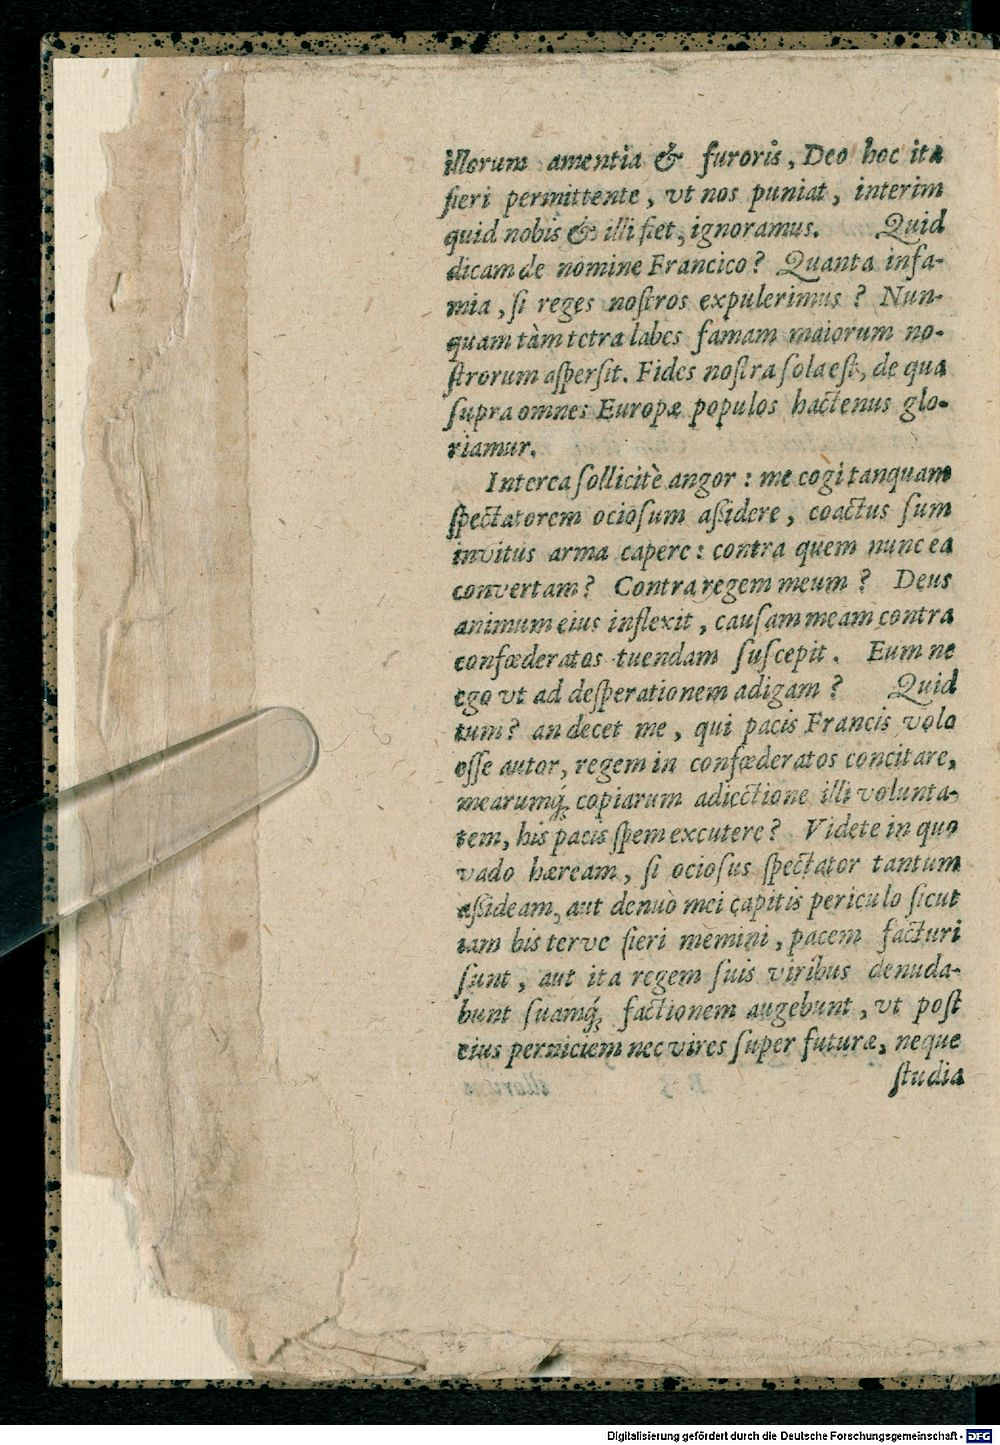 illorum amentia & furoris, Deo hoc ita
fieri permittente, vt nos puniat, interim
quid nobis & illi fiet, ignoramus. Quid
dicam de nomine Francico? Quanta infa-
mia, ſi reges noſtros expulerimus? Nun-
quam tàm tetra labes famam maiorum no-
ſtrorum aſperſit. Fides noſtra ſola eſt, de qua
ſupra omnes Europæ populos hactenus glo-
riamur.
Interea ſollicitè angor: me cogi tanquam
ſpectatorem ocioſum aſsidere, coactus ſum
invitus arma capere: contra quem nunc ea
convertam? Contra regem meum? Deus
animum eius inflexit, cauſam meam contra
confœderatos tuendam ſuſcepit. Eum ne
ego vt ad deſperationem adigam? Quid
tum? an decet me, qui pacis Francis volo
eſſe autor, regem in confœderatos concitare,
mearumq́; copiarum adiectione illi volunta-
tem, his pacis ſpem excutere? Videte in quo
vado hæream, ſi ocioſus ſpectator tantum
aſsideam, aut denuò mei capitis periculo ſicut
iam bis terve fieri memini, pacem facturi
ſunt, aut ita regem ſuis viribus denuda-
bunt ſuamq́; factionem augebunt, vt poſt
eius perniciem nec vires ſuper futuræ, neque
ſtudia
Digitalisierung gefördert durch die Deutsche Forschungsgemeinschaft - DFG